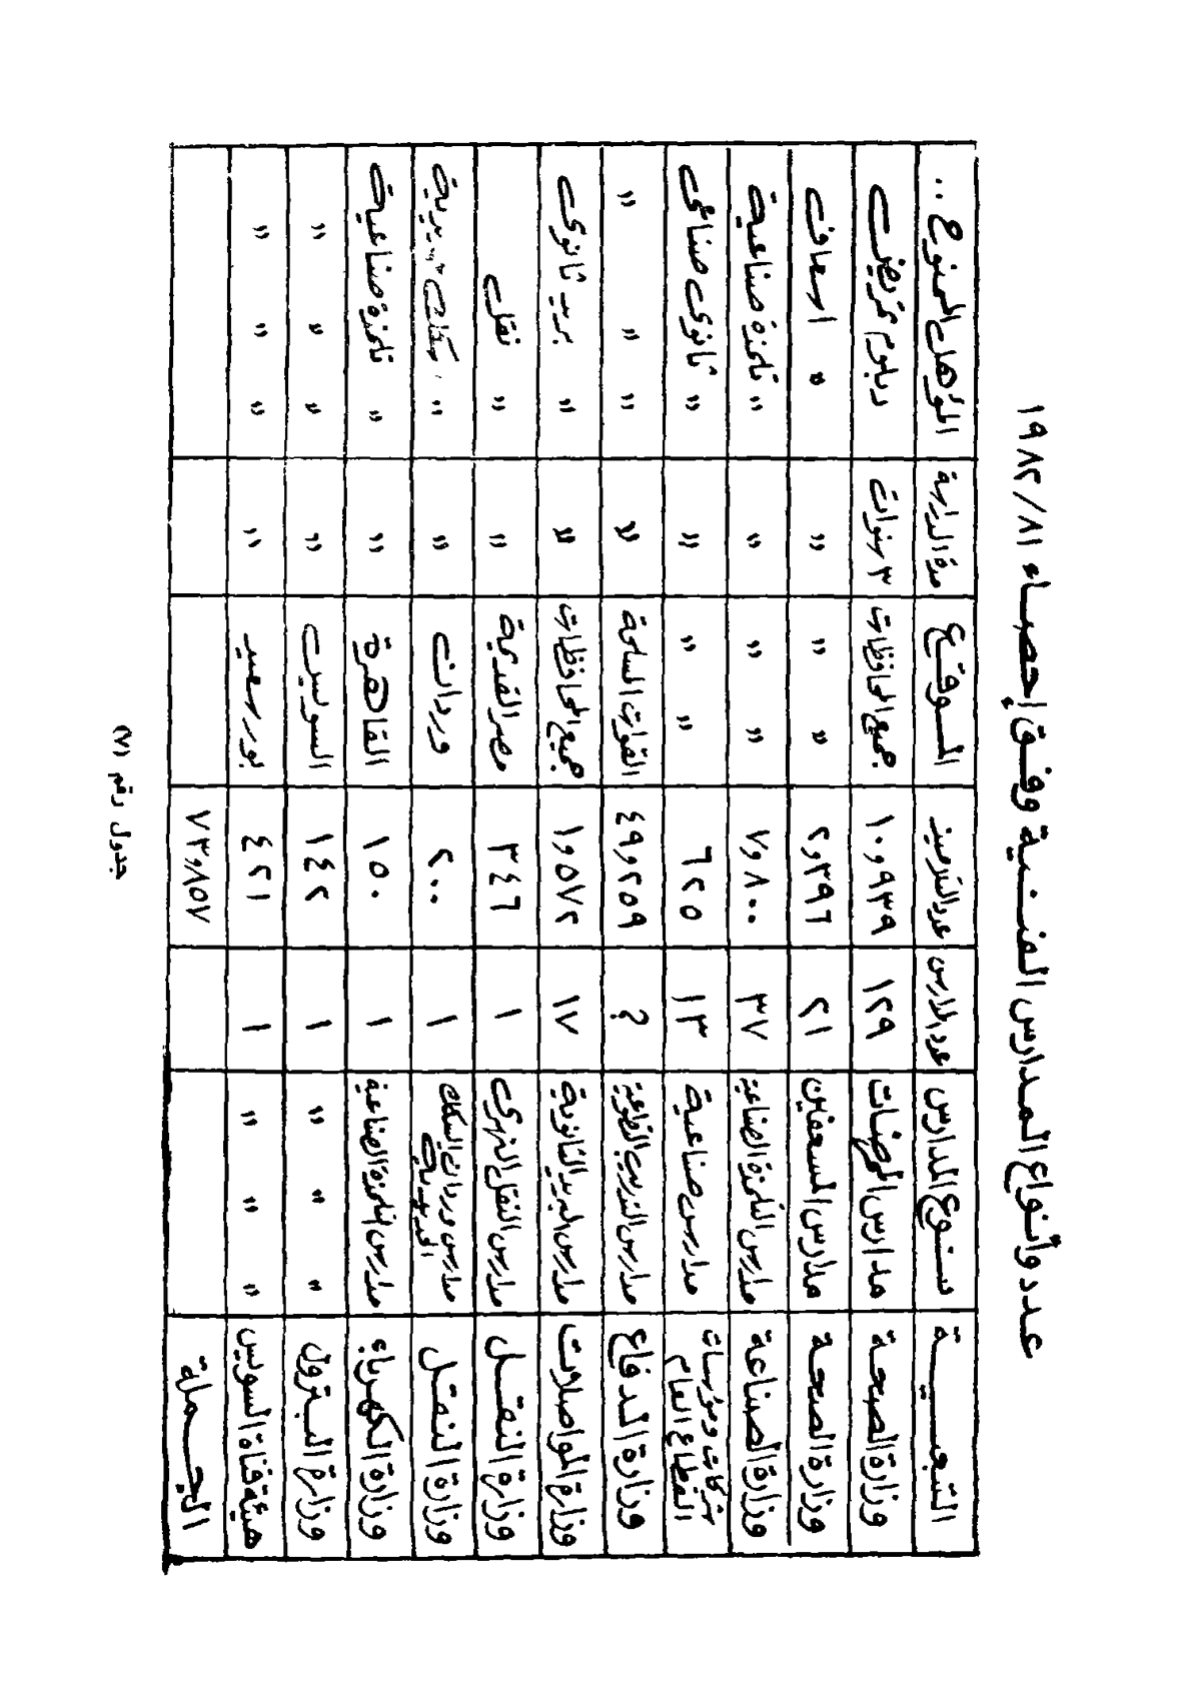 عدد وأنواع المدارس الفنية وفق إحصاء ١٩٨٢/٨١
التبعية نوع المدارس عدد المدارس عدد التلاميذ الموقع مدة الدراسة المؤهل الممنوح ..
وزارة الصحة مدارس الممرضات ١٢٩ ١٠و٩٣٩ جميع المحافظات ٣ سنوات دبلوم تمريض
وزارة الصحة مدارس المسعفين ٢١ ٢و٣٩٦ " " " " اسعاف
وزارة الصناعة مدارس التلمذة الصناعية ٣٧ ٧و٨٠٠ " " " " تلمذة صناعية
شركات ومؤسسات القطاع العام مدارس صناعية ١٣ ٦٢٥ " " " " ثانوى صناعى
وزارة الدفاع مدارس التدريب المتطوعة ? ٤٩و٢٥٩ القوات المسلحة " " " "
وزارة المواصلات مدارس البريد الثانوية ١٧ ١و٥٧٢ جميع المحافظات " " بريد ثانوى
وزارة النقل مدارس النقل النهرى ١ ٣٤٦ مصر القديمة " " نقل
وزارة النقل مدارس وردان السكك الحديدية ١ ٢٠٠ وردان " " سكك حديدية
وزارة الكهرباء مدارس التلمذة الصناعية ١ ١٥٠ القاهرة " " تلمذة صناعية
وزارة البترول " " " ١ ١٤٢ السويس " " " "
هيئة قناة السويس " " " ١ ٤٢١ بورسعيد " " " "
الجملة ٧٣و٨٥٧
جدول رقم (٧)